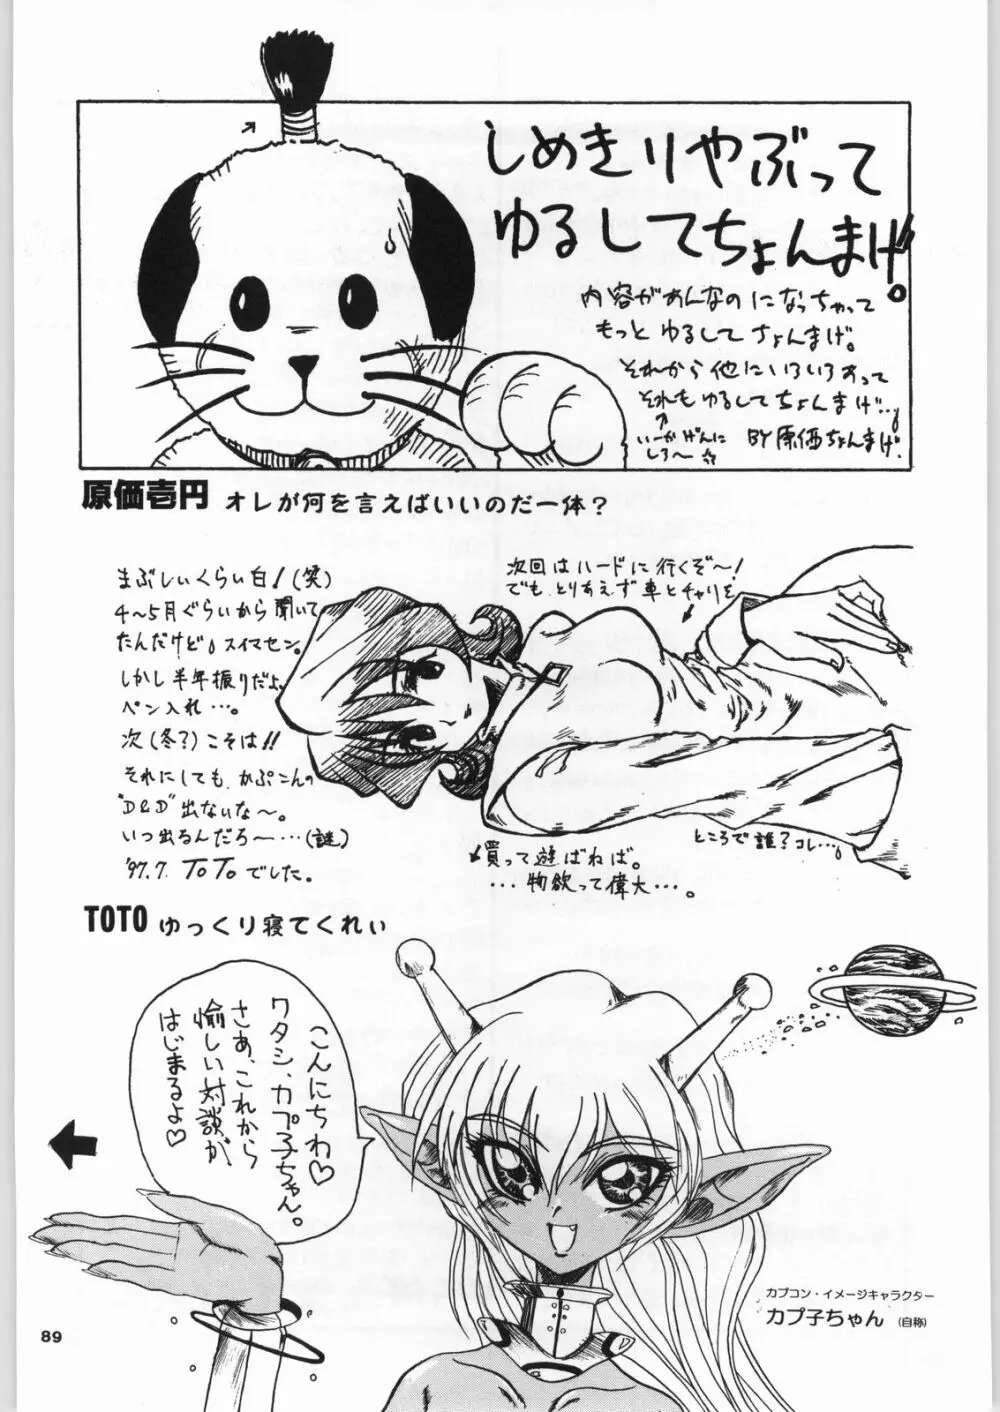 しめきりやぶって
ゆるしてちょんまげ!
内容があんなのになっちゃって
もっと ゆるして ちょんまげ。
それから他にいろいろあって
それも ゆるして ちょんまげ…。
いーかげんに
しろ〜
BY 原価ちょんまげ.
原価壱円 オレが何を言えばいいのだ一体?
まぶしいくらい白!(笑)
4〜5月ぐらいから聞いて
たんだけど。スイマセン。
しかし半年振りだよ
ペン入れ…。
次(冬?)こそは!!
それにしても、かぷこんの
"D&D"出ないな〜。
いつ出るんだろ〜…(謎)
'97.7. ToToでした。
次回はハードに行くぞ〜!
でも、とりあえず車とチャリを
買って遊ばねば。
...物欲って偉大...。
ところで誰?コレ…。
TOTO ゆっくり寝てくれい
こんにちわ♡
ワタシ、カプ子ちゃん。
さあ、これから
愉しい対談が
はじまるよ♡
カプコン・イメージキャラクター
カプ子ちゃん (自称)
89